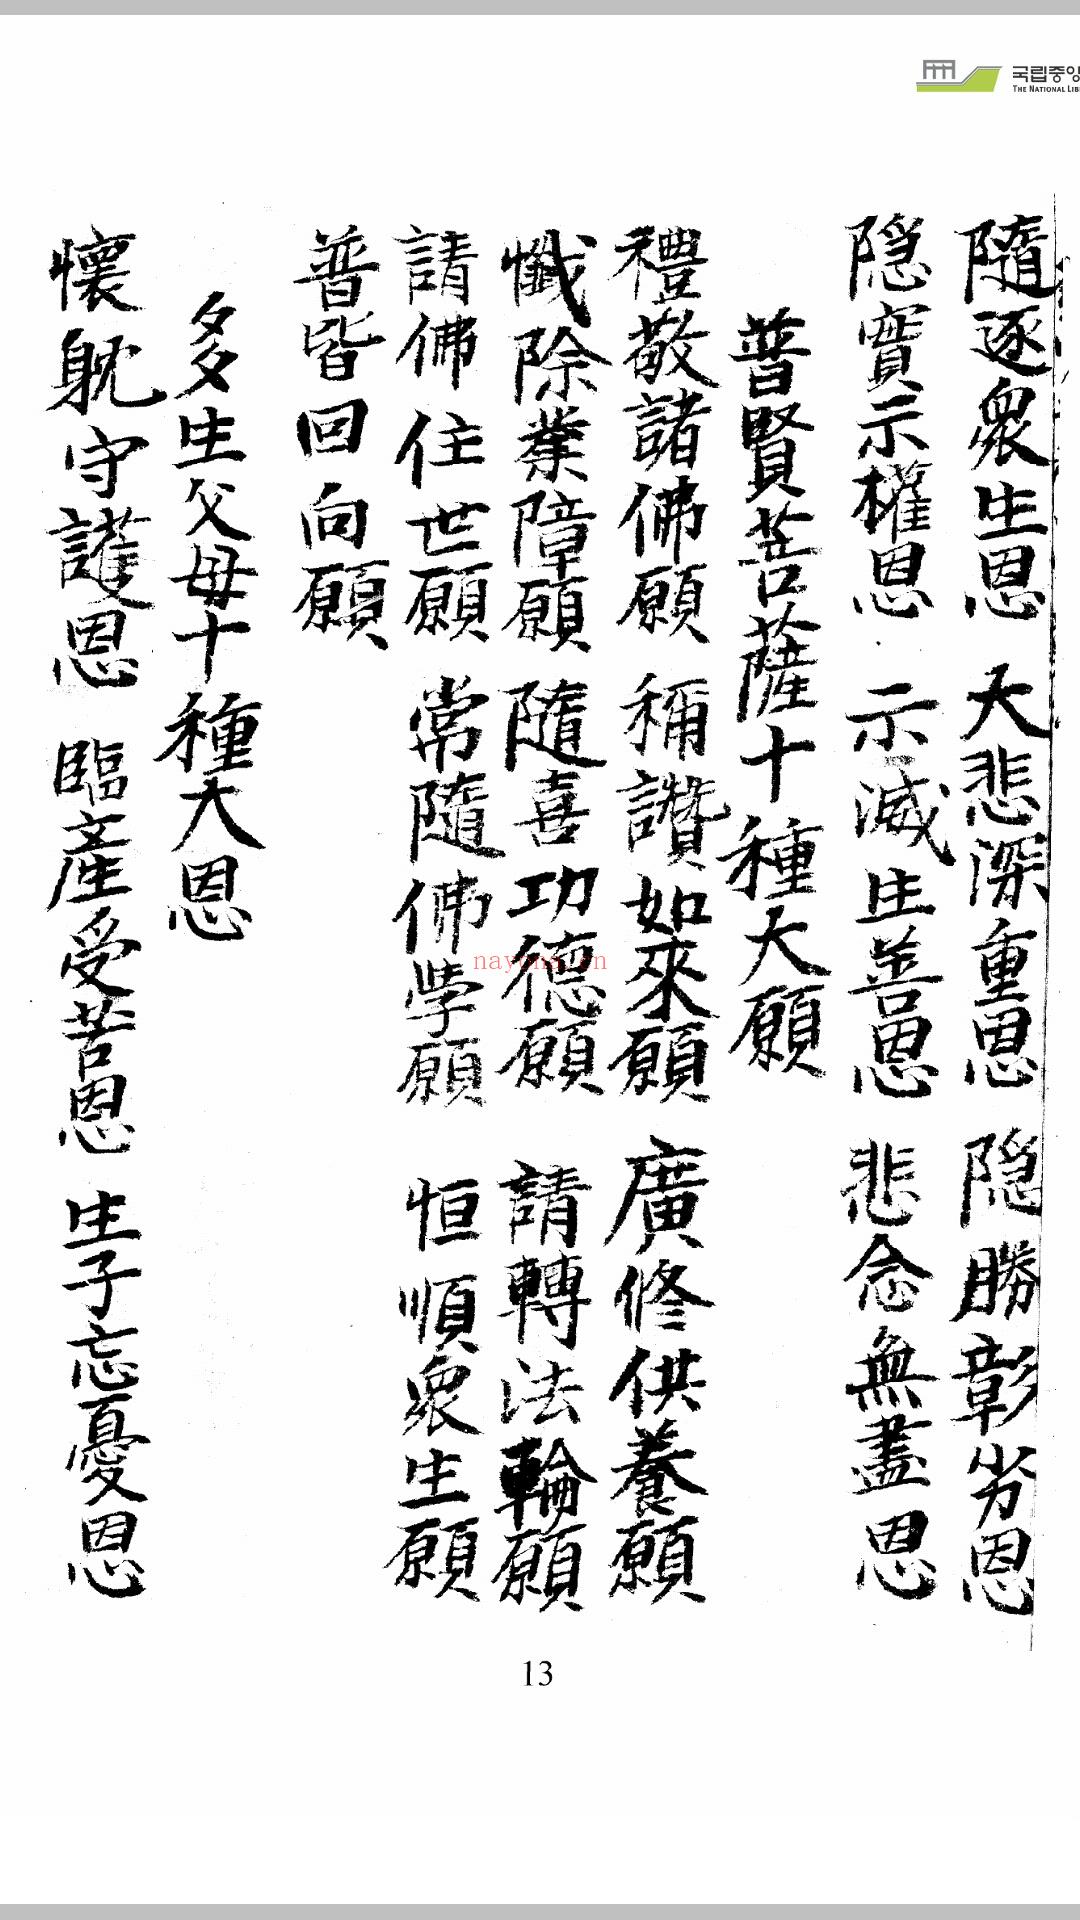 국립중앙
THE NATIONAL LIB
隨逐衆生恩 大悲深重恩 隐勝彰劣恩
隐實示權恩 示滅生善恩 悲念無盡恩
普賢菩薩十種大願
禮敬諸佛願 稱讚如來願 廣修供養願
懺除業障願 隨喜功德願 請轉法輪願
請佛住世願 常隨佛學願 恒順衆生願
普皆回向願
多生父母十種大恩
懷躭守護恩 臨產受苦恩 生子忘憂恩
nayona.cn
13